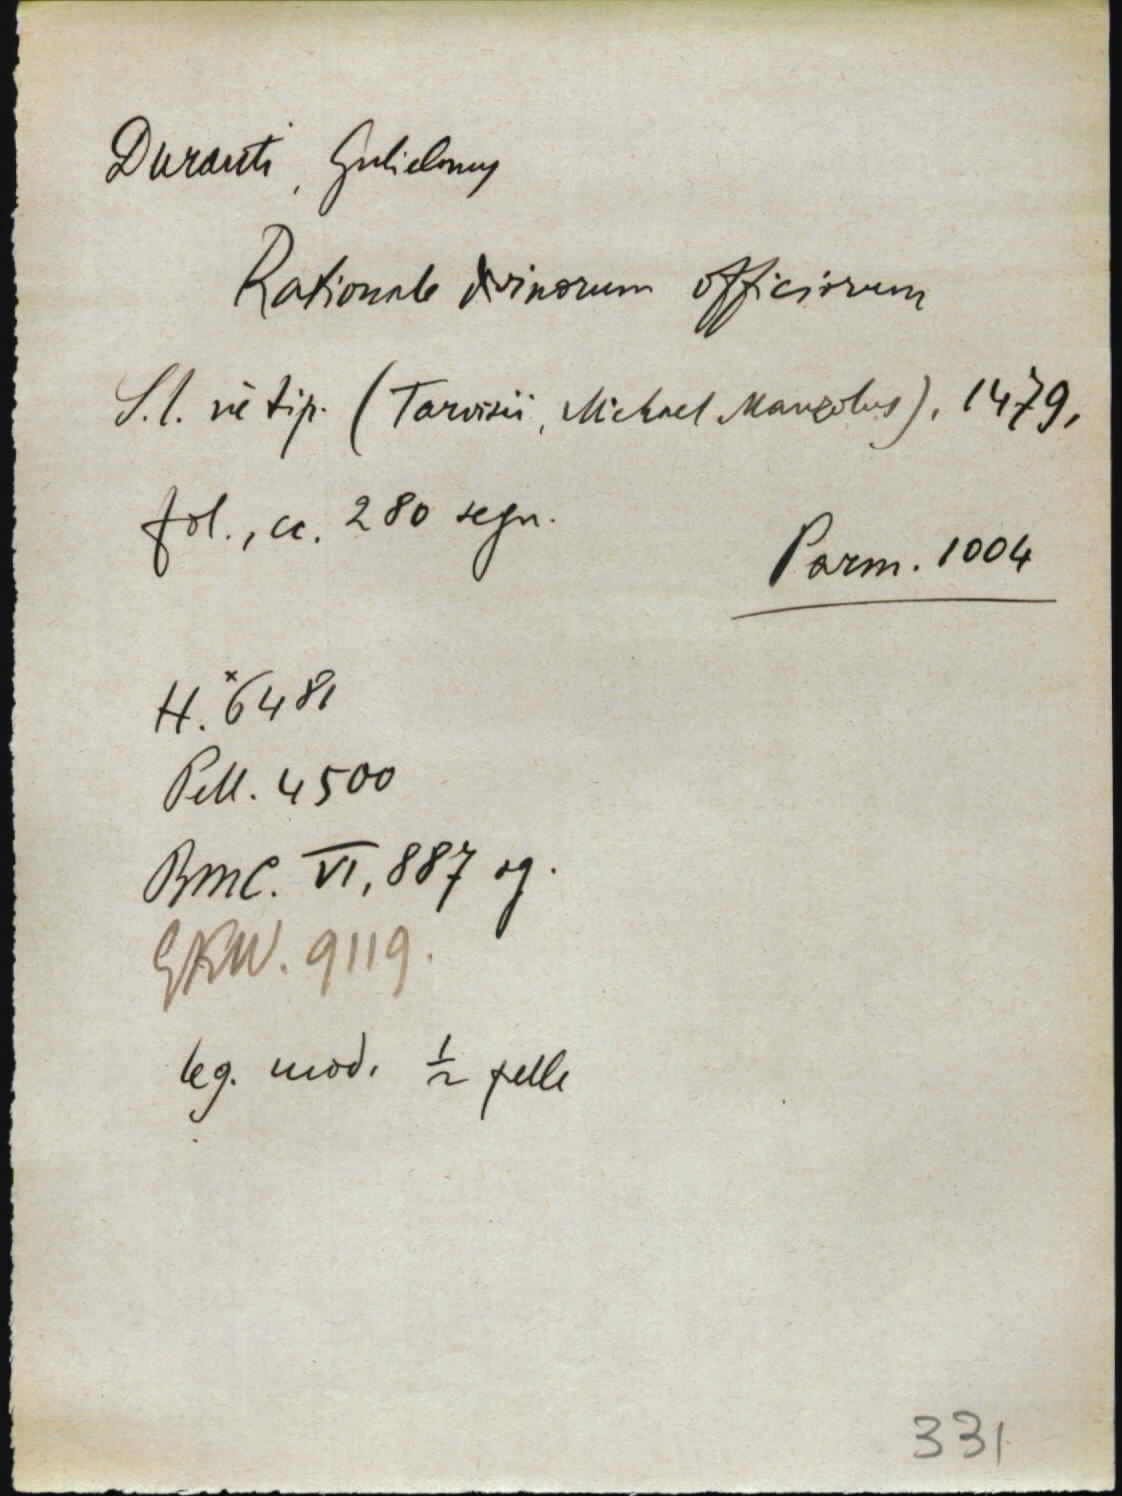 Duranti, Gulielmus
Rationale divinorum officiorum
S.l. nè tip. (Tarvisii, Michael Manzolus), 1479,
fol., cc. 280 segn.
Parm. 1004
H. *6481
Pell. 4500
BMC. VI, 887 sg.
GKW. 9119.
leg. mod. ½ pelle
331